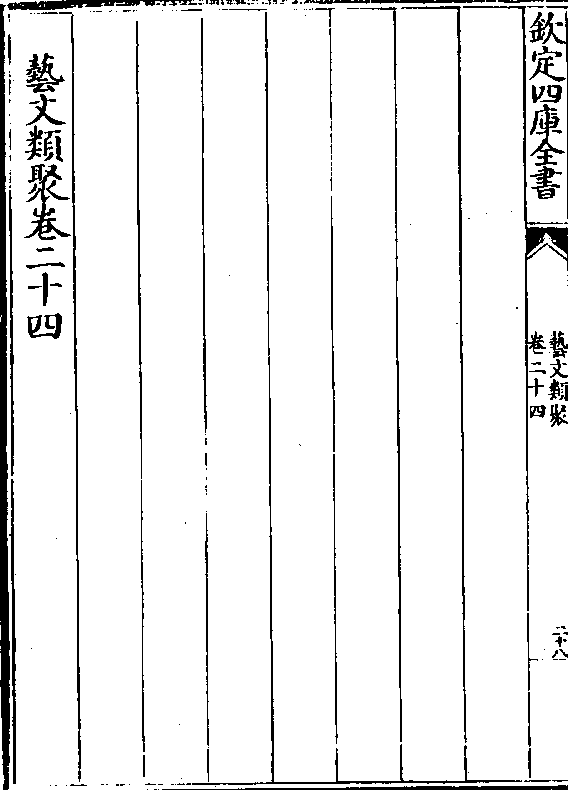 欽定四庫全書
藝文類聚
卷二十四
二十八
藝文類聚卷二十四